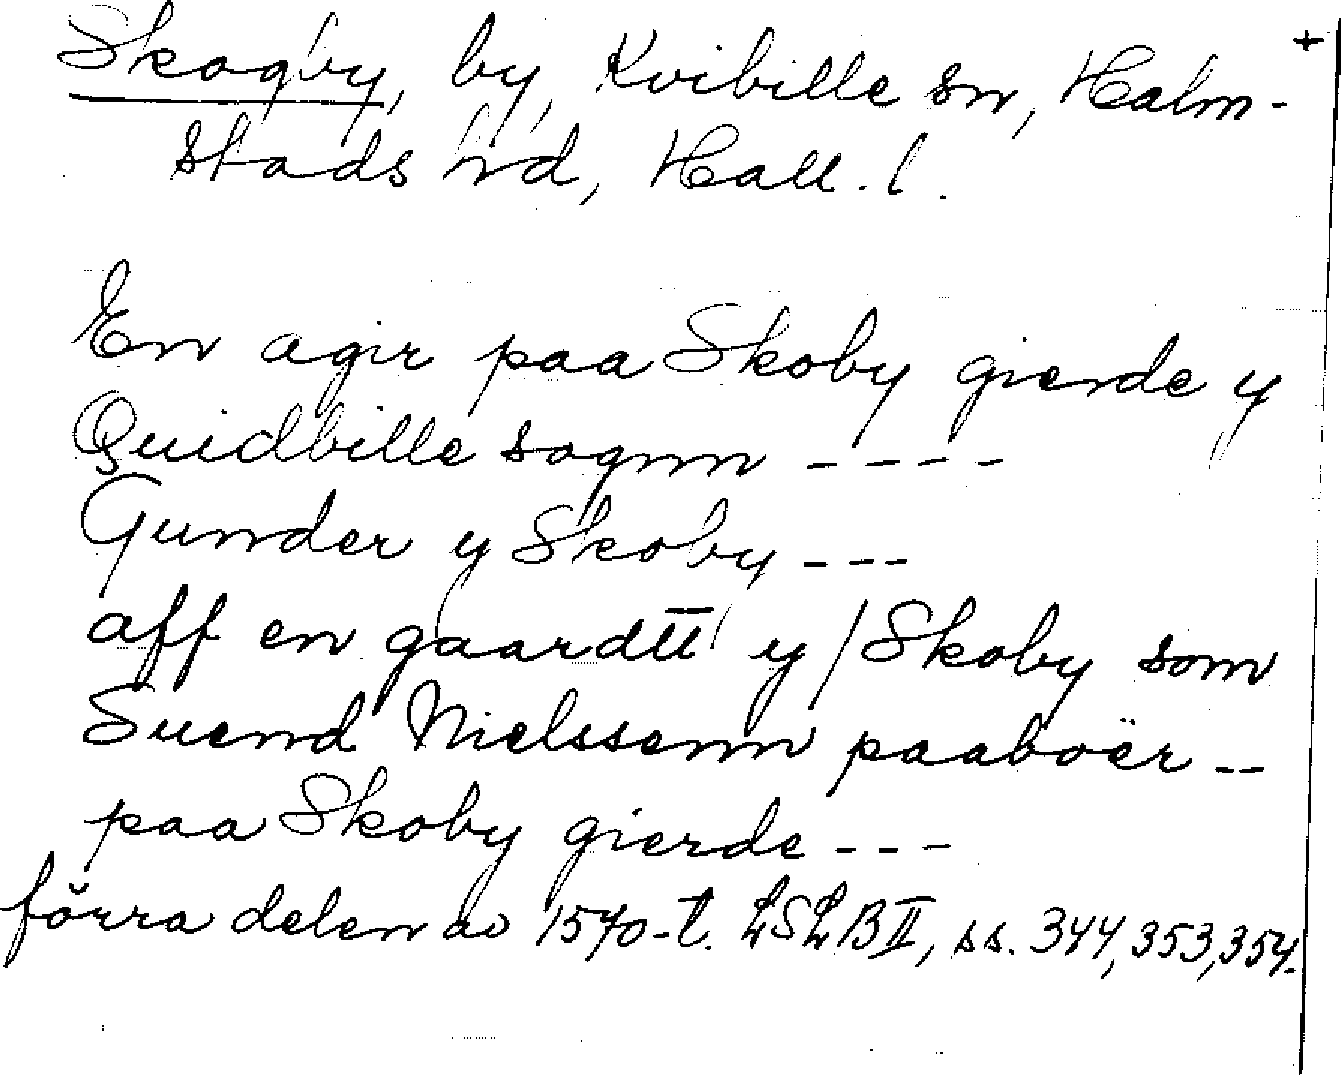 Skogby, by, Kvibille sn, Halm-
stads hrd, Hall. l.
+
En agir paa Skoby gierde y
Quidbille sognn ----
Gunder y Skoby ---
aff en gaardtt y / Skoby som
Suend Nielssenn paaboër --
paa Skoby gierde ---
förra delen av 1570-t. LSLB II, ss. 344, 353, 354.